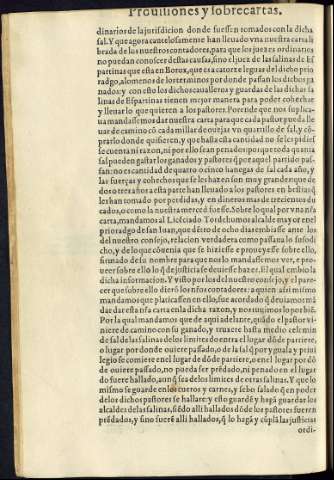 Prouisiones y sobrecartas.
dinarios de la jurisdicion donde fuessen tomados con la dicha
sal. Y que agora cautelosamente han lleuado vna nuestra carta li
brada de los nuestros contadores, para que los juezes ordinarios
no puedan conoscer destas causas, sino el juez de las salinas de Es
partinas que esta en Borox, que esta catorze leguas del dicho prio
radgo, alomenos de los terminos por donde passan los dichos ga
nados: y con esto los dichos caualleros y guardas de las dichas sa
linas de Espartinas tienen mejor manera para poder cohechar
y lleuar lo que quieren a los pastores. Porende que nos suplica-
ua mandassemos dar nuestra carta para que cada pastor pueda lle
uar de camino cõ cada millar de ouejas vn quartillo de sal, y cõ-
prarlo donde quisieren, y que hasta esta cantidad no se les pidiesse
se cuenta ni razon, ni por ello sean penados: porque toda quanta
sal pueden gastar los ganados y pastores q̃ por aquel partido pas-
san: no es cantidad de quatro o cinco hanegas de sal cada año, y
las fuerças y cohechos que se les hazen son muy grandes: que de
dos o tres años a esta parte han lleuado a los pastores en bestias q̃
les han tomado por perdidas, y en dineros mas de trezientos du
cados, o como la nuestra merced fuesse. Sobre lo qual por vna nr̃a
carta, mandamos al Licẽciado Tordehumos alcalde mayor en el
prioradgo de san Iuan, que dẽtro de ocho dias embiasse ante los
del nuestro consejo, relacion verdadera como passaua lo susodi
cho, y de lo que cõuenia que se hiziesse y proueyesse sobre ello,
firmado de su nombre para que nos lo mandassemos ver, e pro-
ueer sobre ello lo q̃ de justicia se deuiesse hazer. El qual embio la
dicha informacion. Y visto por los del nuestro consejo, y el pare-
cer que sobre ello dierõ los nr̃os contadores: a quien assi mismo
mandamos que platicassen en ello, fue acordado q̃ deuiamos mã
dar dar esta nr̃a carta en la dicha razon, y nos tuuimos lo por biẽ.
Por la qual mandamos que de aqui adelante, quãdo el pastor vi-
niere de camino con su ganado, y truxere hasta medio celemin
de sal de las salinas de los limites do entra el lugar dõde partiere,
o lugar por donde ouiere passado, o de la sal q̃ por yguala y priui
legio se comiere en el lugar de dõde partiere, o en el lugar por dõ
de ouiere passado, no pueda ser prẽdado, ni penado en el lugar
do fuere hallado, aunq̃ sea de los limites de otras salinas. Y que lo
mismo se guarde en cueros y carne, y sebo salado q̃ en poder
de los dichos pastores se hallare: y esto guardẽ y hagã guardar los
alcaldes de las salinas, si ẽdo alli hallados dõde los pastores fueren
prẽdados, y sino fuerẽ alli hallados, q̃ lo hagã y cũplã las justicias
ordi-